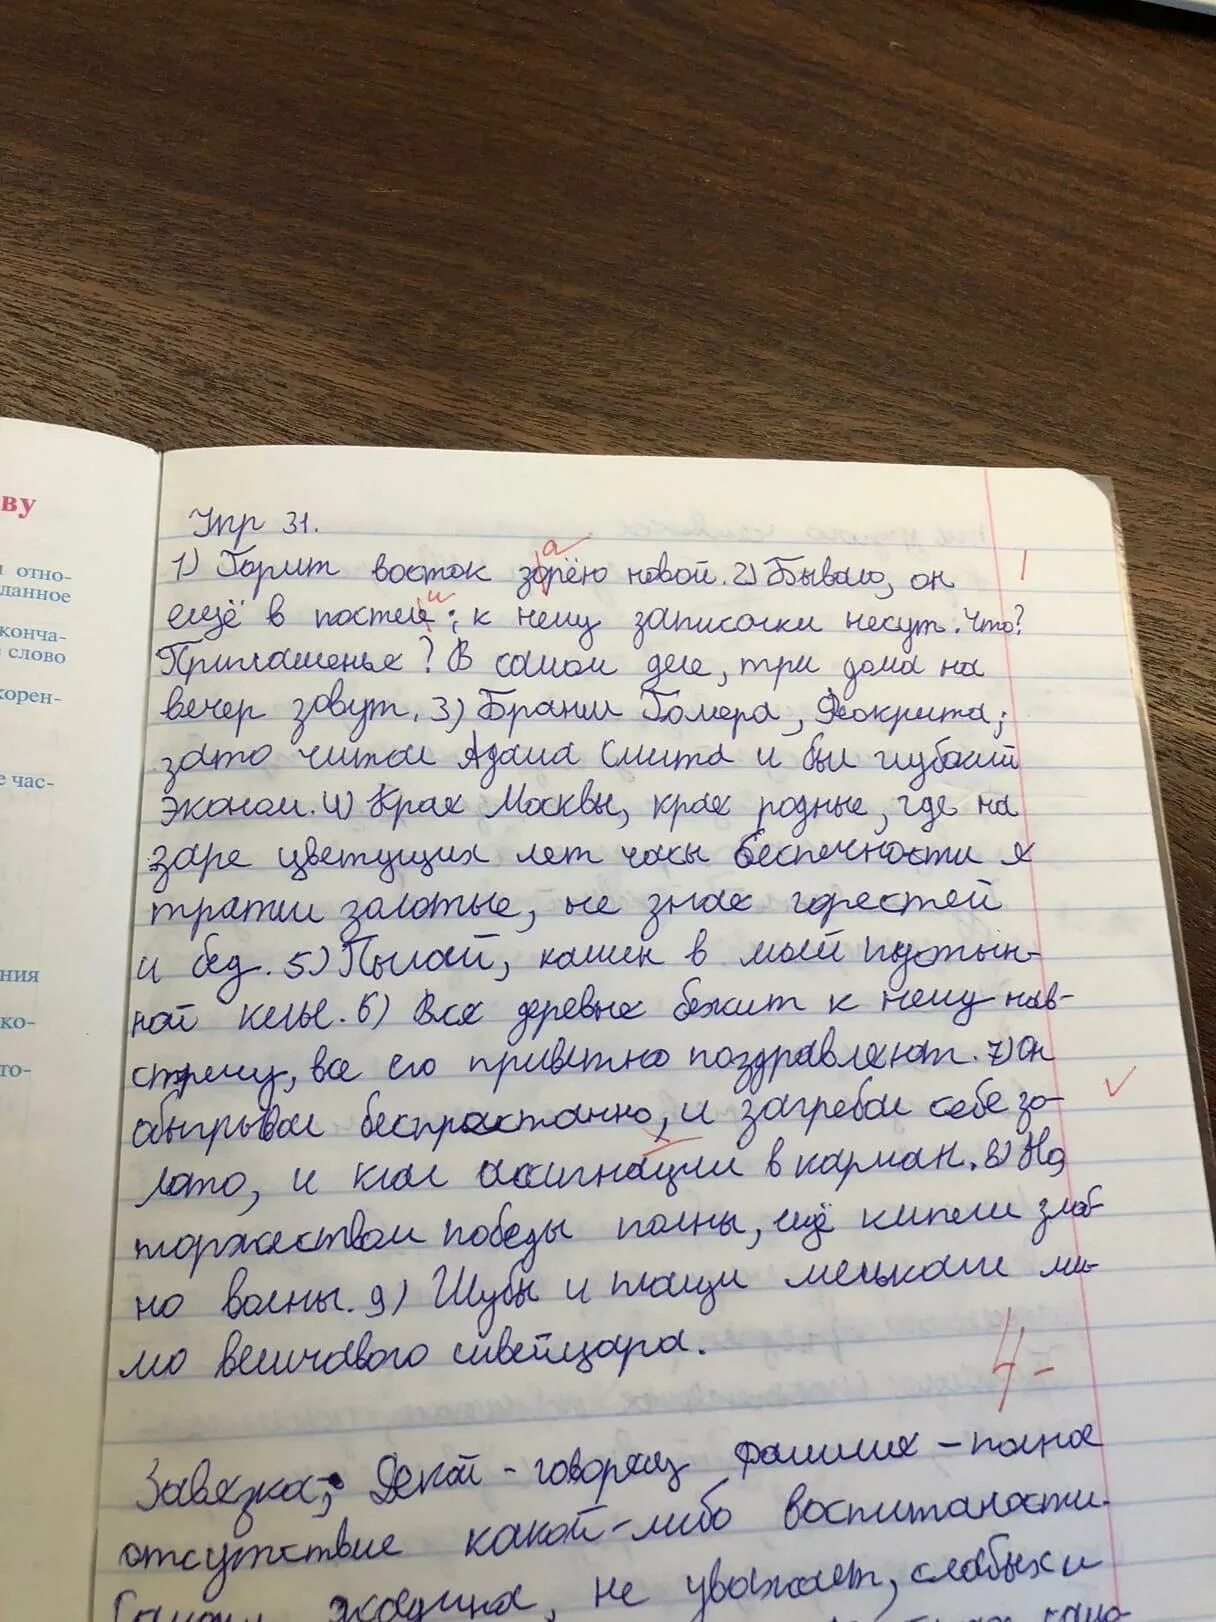 ву
отно-
данное
конча-
слово
корен-
е час-
ния
ко-
то-
Упр 31.
1) Горит восток зарёю новой. 2) Бывало, он
ещё в постели: к нему записочки несут. Что?
Приглашенье? В самом деле, три дома на
вечер зовут. 3) Бранил Гомера, Феокрита;
зато читал Адама Смита и был глубокий
эконом. 4) Края Москвы, края родные, где на
заре цветущих лет часы беспечности я
тратил золотые, не зная горестей
и бед. 5) Пылай, камин в моей пустын-
ной келье. 6) Вся деревня бежит к нему нав-
стречу, все его приветно поздравляют. 7) Он
обыгрывал беспрастанно, и загребал себе зо-
лото, и клал ассигнации в карман. 8) Но,
торжеством победы полны, ещё кипели злоб-
но волны. 9) Шубы и плащи мелькали ми-
мо величавого швейцара.
4-
Завязка; - говорящ фамилия - полное
отсутствие какой-либо воспитаности.
не уважает, слабых и